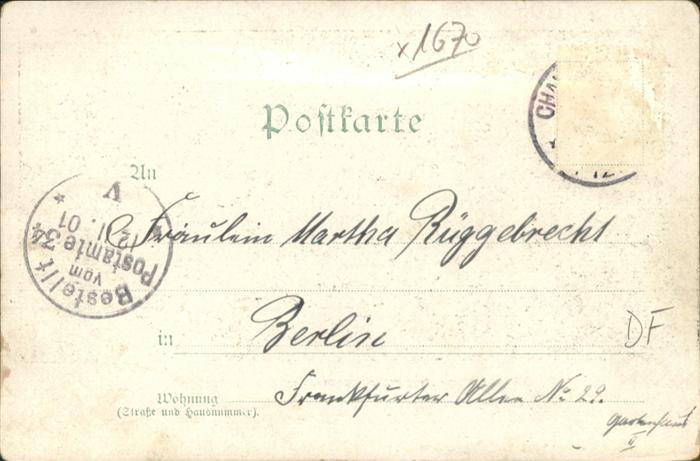 x 1670
CHA
12.
Postkarte
An
Fräulein Martha Rüggebrecht
Bestellt
vom
Postamte 34
12 1. 01
V
in
Berlin
DF
Wohnung
(Straße und Hausnummer).
Frankfurter Allee No 29.
Gartenhaus
II